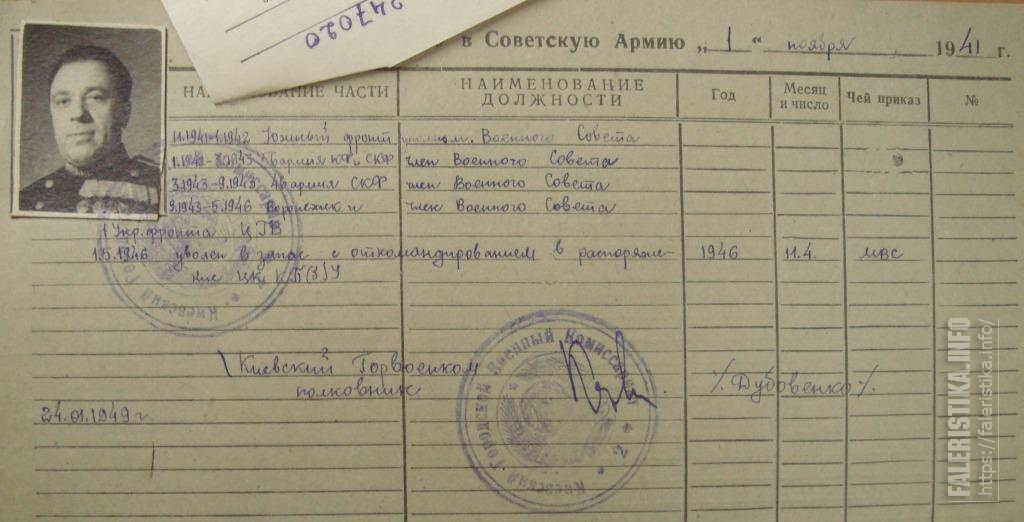 247020
в Советскую Армию „1“ ноября 1941 г.
НАИМЕНОВАНИЕ ЧАСТИ НАИМЕНОВАНИЕ ДОЛЖНОСТИ Год Месяц и число Чей приказ №
11.1941-1.1942 Южный фронт Военного Совета
армия ЮФ и СКФ член Военного Совета
3.1943-9.1943 армия СКФ член Военного Совета
9.1943-5.1946 Воронежск и член Военного Совета
1 Укр. фронта, ЦГВ
1.5.1946 уволен в запас с откомандированием в распоряже- 1946 11.4. МВС
ние ЦК КП(б)У
Киевский Городской Военный Комиссариат
Киевский Горвоенком
полковник /Дубовенко/.
24.01.1949 г.
Киевский Городской
FALERISTIKA.INFO
https://faleristika.info/